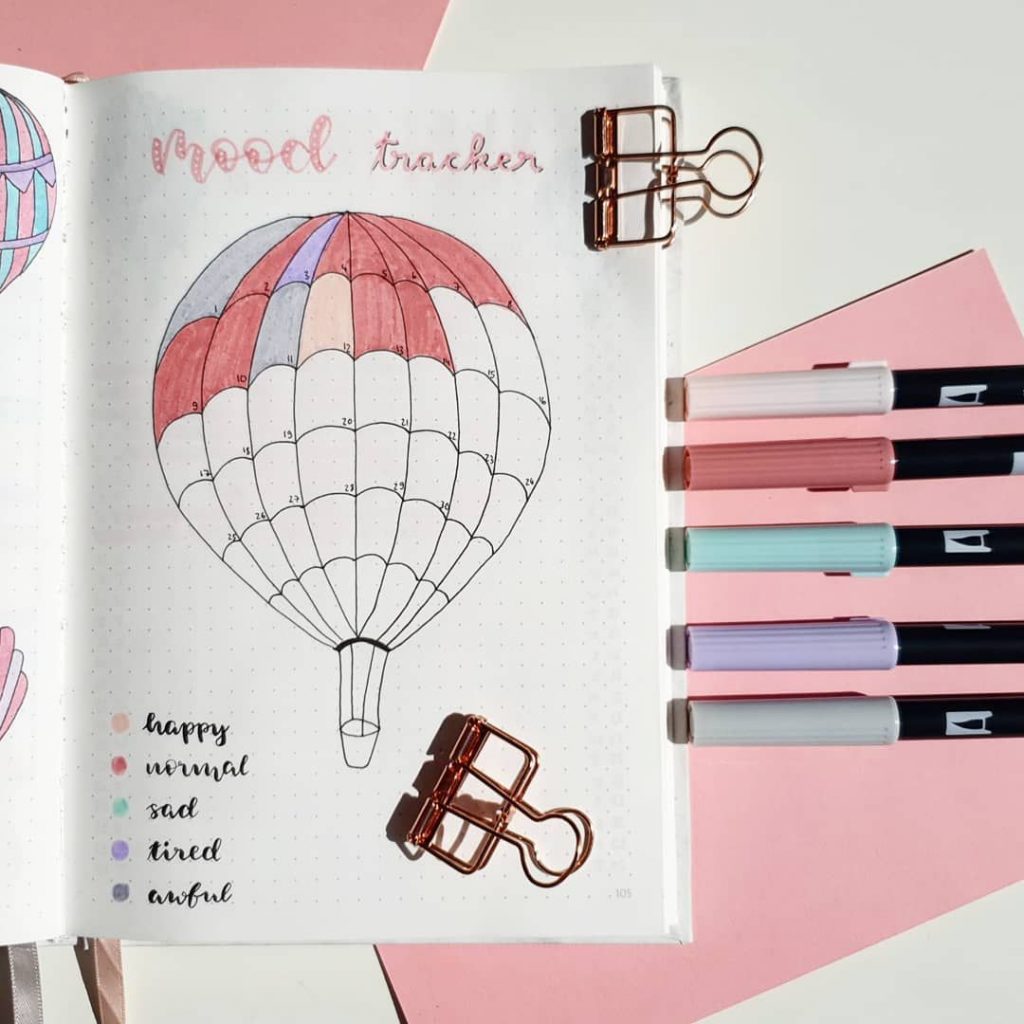 mood tracker
1
2
3
4
5
6
7
8
9
10
11
12
13
14
15
16
17
18
19
20
21
22
23
24
25
26
27
28
29
30
happy
normal
sad
tired
awful
105